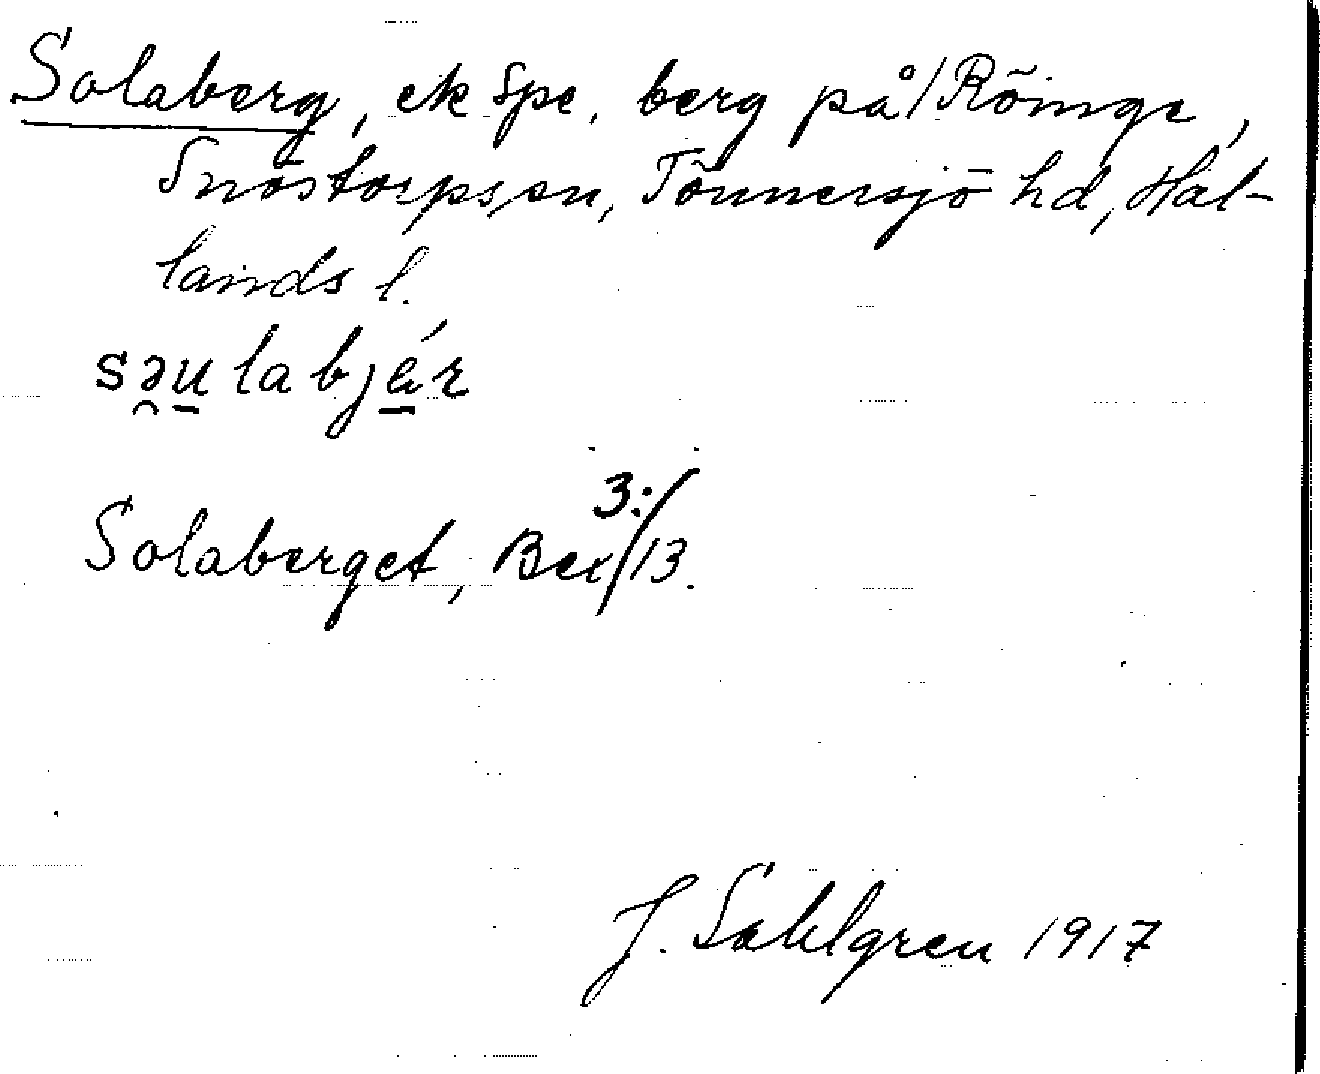 Solaberg, ek Spe. berg på/Röinge,
Snöstorps sn, Tönnersjö hd, Hal-
lands l.
səu̲labjǽr
Solaberget, Bex 3:/13.
J. Sahlgren 1917